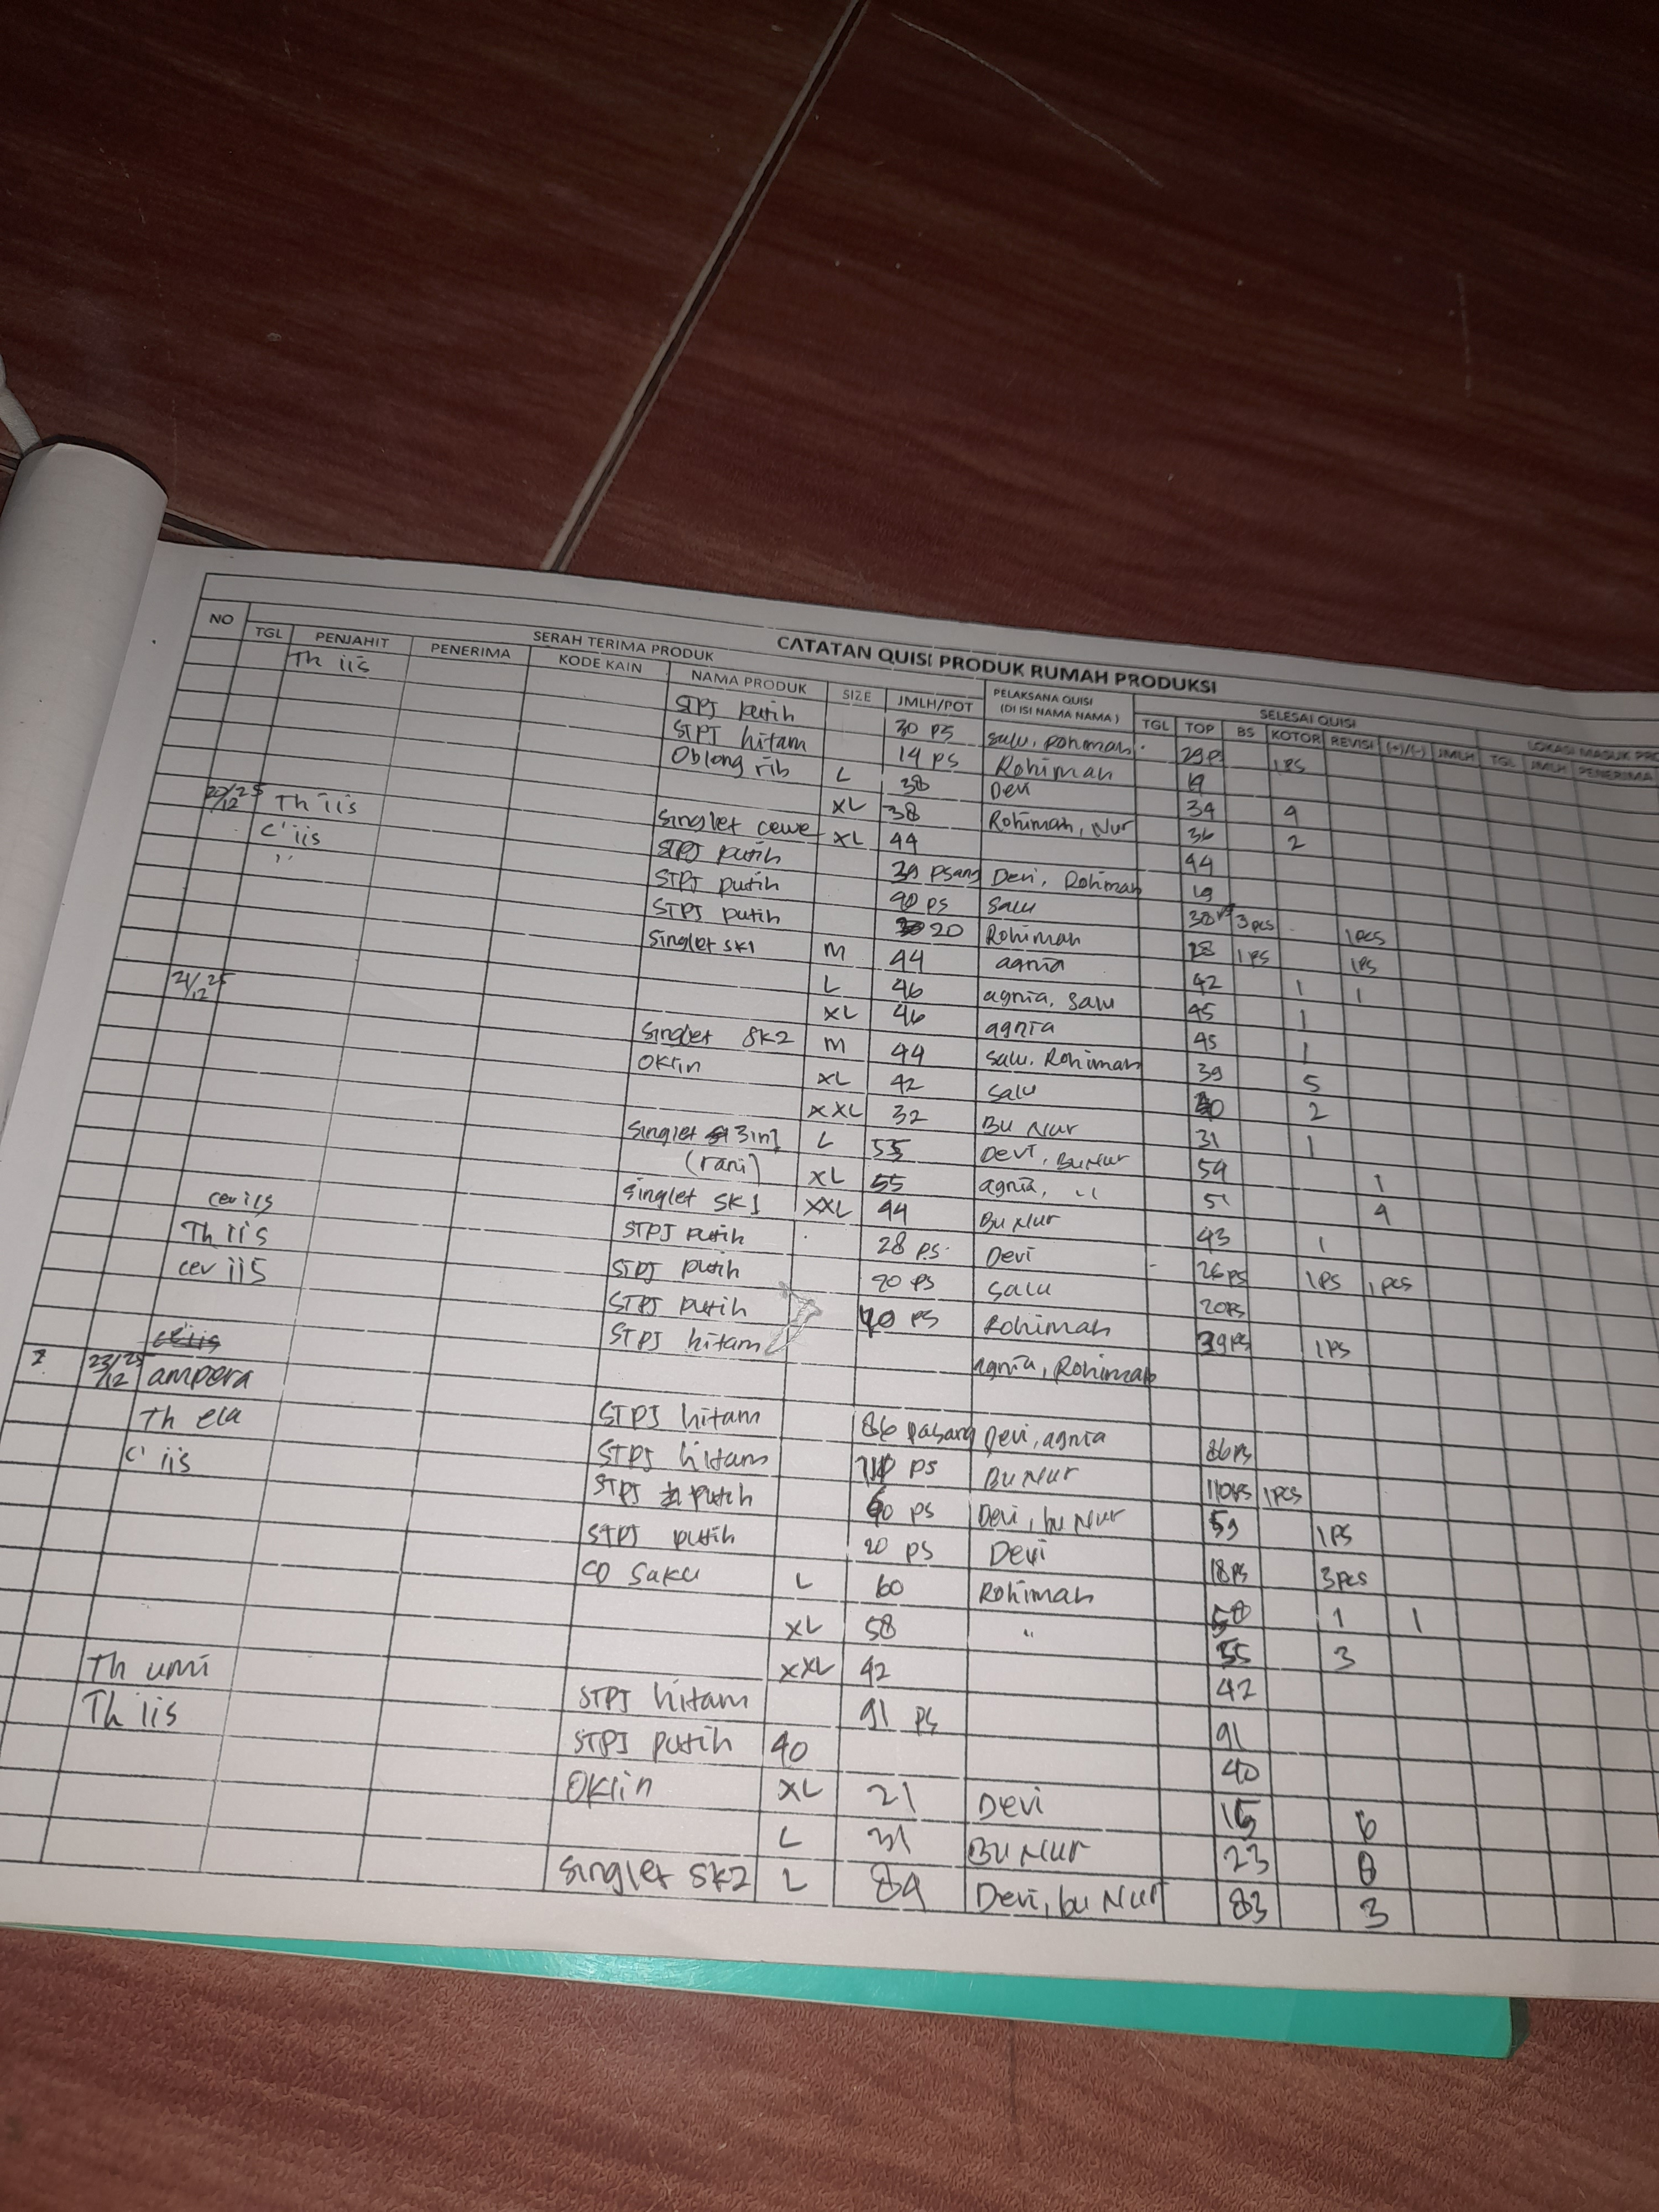 CATATAN QUISI PRODUK RUMAH PRODUKSI
NO SERAH TERIMA PRODUK PELAKSANA QUISI (DI ISI NAMA NAMA) SELESAI QUISI LOKASI MASUK PRO
TGL PENJAHIT PENERIMA KODE KAIN NAMA PRODUK SIZE JMLH/POT TGL TOP BS KOTOR REVISI (+)/(-) JMLH TGL JMLH PENERIMA
Th iis
STPJ putih 30 ps salu, rohimah 29 ps 1 ps
STPJ hitam 19 ps Rohimah 19
Oblong rib L 38 Devi 34 4
XL 38 Rohimah, Nur 36 2
20/12 25 Th iis Singlet cewe XL 44 44
C' iis STPJ putih 39 psang Devi, Rohimah 19
" STPJ putih 40 ps salu 38 3 pcs 1 pcs
STPJ putih 20 Rohimah 18 1 ps 1 ps
Singlet SK1 M 44 agnia 42 1 1
21/12 25 L 46 agnia, salu 45 1
XL 46 agnia 45 1
Singlet SK2 M 44 salu, Rohimah 39 5
Oklin XL 42 salu 40 2
XXL 32 Bu Nur 31 1
Singlet 3in1 L 55 Devi, Bu Nur 54 1
(rani) XL 55 agnia, " 51 4
cev iis Singlet SK1 XXL 44 Bu Nur 43 1
Th iis STPJ putih 28 ps Devi 26 ps 1 ps 1 pcs
cev iis STPJ putih 20 ps salu 20 ps
STPJ putih 40 ps Rohimah 39 ps 1 ps
STPJ hitam agnia, Rohimah
c' iis
23/12 25 ampera STPJ hitam 86 pasang Devi, agnia 86 ps
Th ela STPJ hitam ps Bu Nur 110 ps 1 pcs
C' iis STPJ putih 60 ps Devi, bu Nur 59 1 ps
STPJ putih 20 ps Devi 18 ps 3 pcs
CO Saku L 60 Rohimah 58 1 1
XL 58 " 55 3
XXL 42 42
Th umi STPJ hitam 91 ps 91
Th iis STPJ putih 40 40
Oklin XL 21 Devi 15 6
L 31 Bu Nur 23 8
Singlet SK2 L 84 Devi, bu Nur 83 3